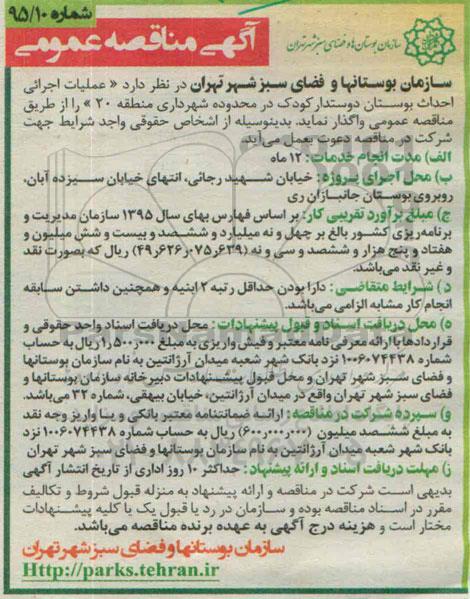 شماره ۹۵/۱۰
آگهی مناقصه عمومی
سازمان بوستان‌ها و فضای سبز شهر تهران
سازمان بوستانها و فضای سبز شهر تهران در نظر دارد « عملیات اجرائی
احداث بوستان دوستدار کودک در محدوده شهرداری منطقه ۲۰ » را از طریق
مناقصه عمومی واگذار نماید. بدینوسیله از اشخاص حقوقی واجد شرایط جهت
شرکت در مناقصه دعوت بعمل می‌آید.
الف) مدت انجام خدمات: ۱۲ ماه
ب) محل اجرای پروژه: خیابان شهید رجائی، انتهای خیابان سیزده آبان،
روبروی بوستان جانبازان ری
ج) مبلغ برآورد تقریبی کار: بر اساس فهارس بهای سال ۱۳۹۵ سازمان مدیریت و
برنامه‌ریزی کشور بالغ بر چهل و نه میلیارد و ششصد و بیست و شش میلیون و
هفتاد و پنج هزار و ششصد و سی و نه (۴۹٫۶۲۶٫۰۷۵٫۶۳۹) ریال که بصورت نقد
و غیر نقد می‌باشد.
د) شرایط متقاضی: دارا بودن حداقل رتبه ۲ ابنیه و همچنین داشتن سابقه
انجام کار مشابه الزامی می‌باشد.
ه) محل دریافت اسناد و قبول پیشنهادات: محل دریافت اسناد واحد حقوقی و
قراردادها با ارائه معرفی نامه معتبر و فیش واریزی به مبلغ ۱,۵۰۰,۰۰۰ ریال به حساب
شماره ۱۰۰۶۰۷۴۴۳۸ نزد بانک شهر شعبه میدان آرژانتین به نام سازمان بوستانها
و فضای سبز شهر تهران و محل قبول پیشنهادات دبیرخانه سازمان بوستانها و
فضای سبز شهر تهران واقع در میدان آرژانتین، خیابان بیهقی، شماره ۳۲ می‌باشد.
و) سپرده شرکت در مناقصه: ارائه ضمانتنامه معتبر بانکی و یا واریز وجه نقد
به مبلغ ششصد میلیون (۶۰۰,۰۰۰,۰۰۰) ریال به حساب شماره ۱۰۰۶۰۷۴۴۳۸ نزد
بانک شهر شعبه میدان آرژانتین به نام سازمان بوستانها و فضای سبز شهر تهران
ز) مهلت دریافت اسناد و ارائه پیشنهاد: حداکثر ۱۰ روز اداری از تاریخ انتشار آگهی
بدیهی است شرکت در مناقصه و ارائه پیشنهاد به منزله قبول شروط و تکالیف
مقرر در اسناد مناقصه بوده و سازمان در رد یا قبول یک یا کلیه پیشنهادات
مختار است و هزینه درج آگهی به عهده برنده مناقصه می‌باشد.
سازمان بوستانها و فضای سبز شهر تهران
Http://parks.tehran.ir